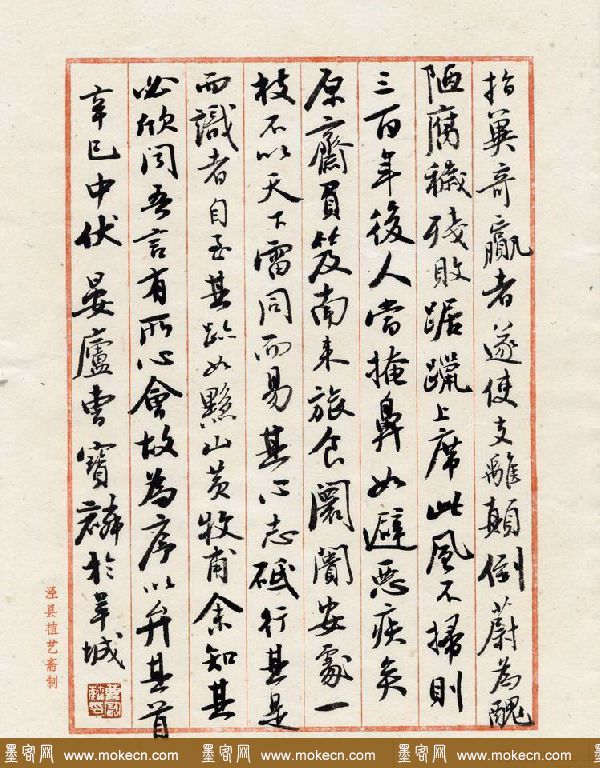 指冀奇贏者遂使支離顛倒蔚為醜
陋腐穢殘敗踞躐上席此風不掃則
三百年後人當掩鼻如避惡疾矣
原齋負笈南來旅食闤闠安處一
枝不以天下雷同而易其心志砥行其是
而識者自至其跡如黟山黃牧甫余知其
必欣聞吾言有所心會故為序以弁其首
辛巳中伏 晏廬曹寶麟於羊城
泾县植艺斋制
墨客网 www.mokecn.com 墨客网 www.mokecn.com 墨客网 www.mokecn.com